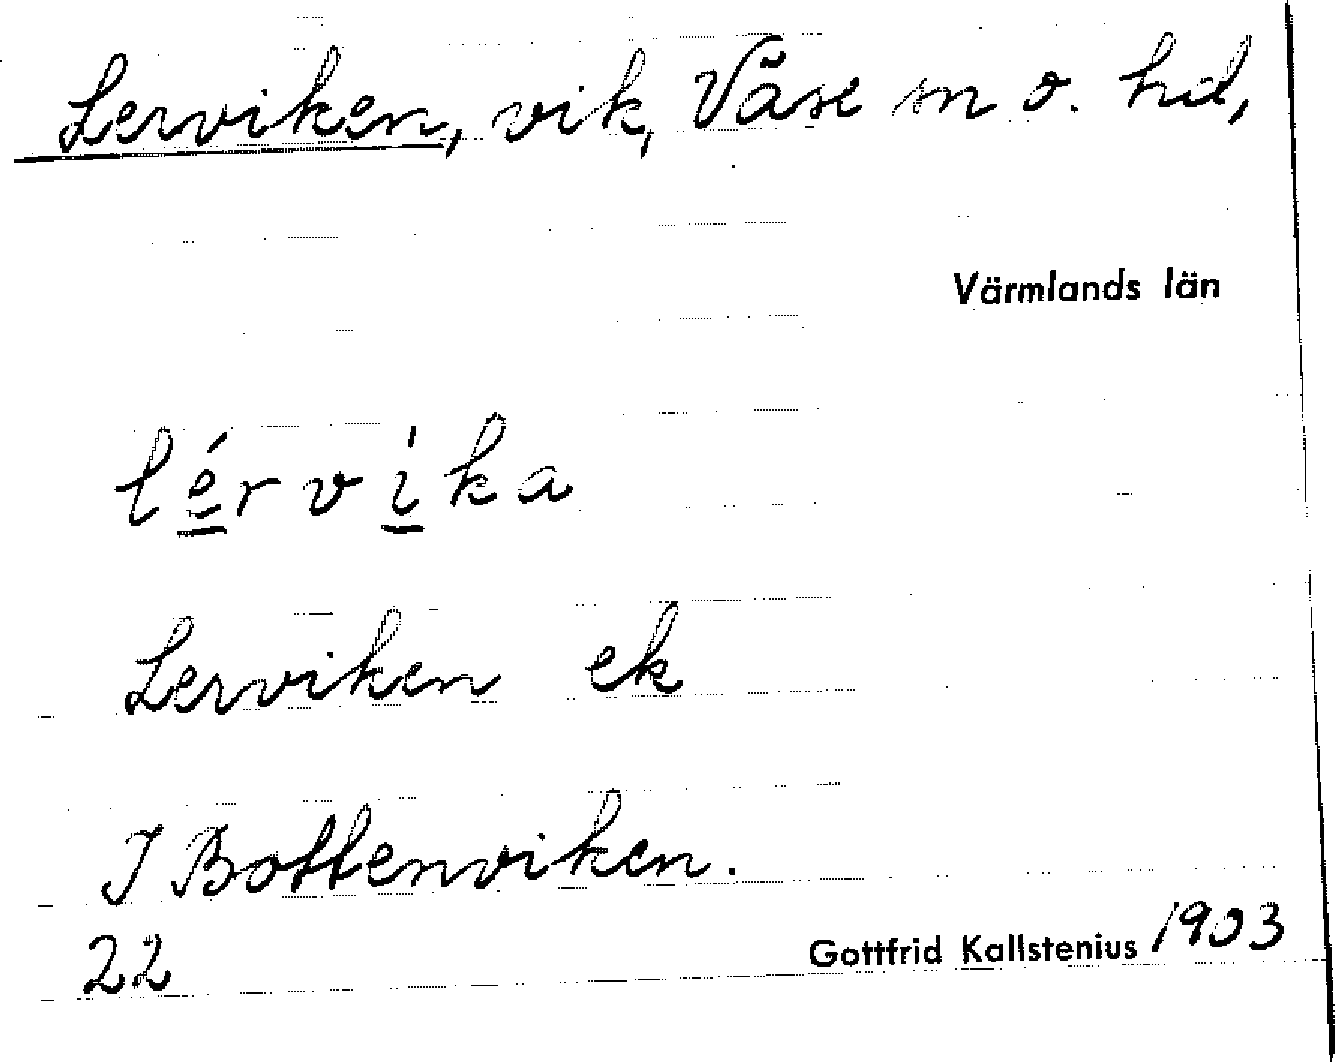 Lerviken, vik, Väse sn o. hd,
Värmlands län
lérvi̍ka
Lerviken ek
I Bottenviken.
22
Gottfrid Kallstenius 1903